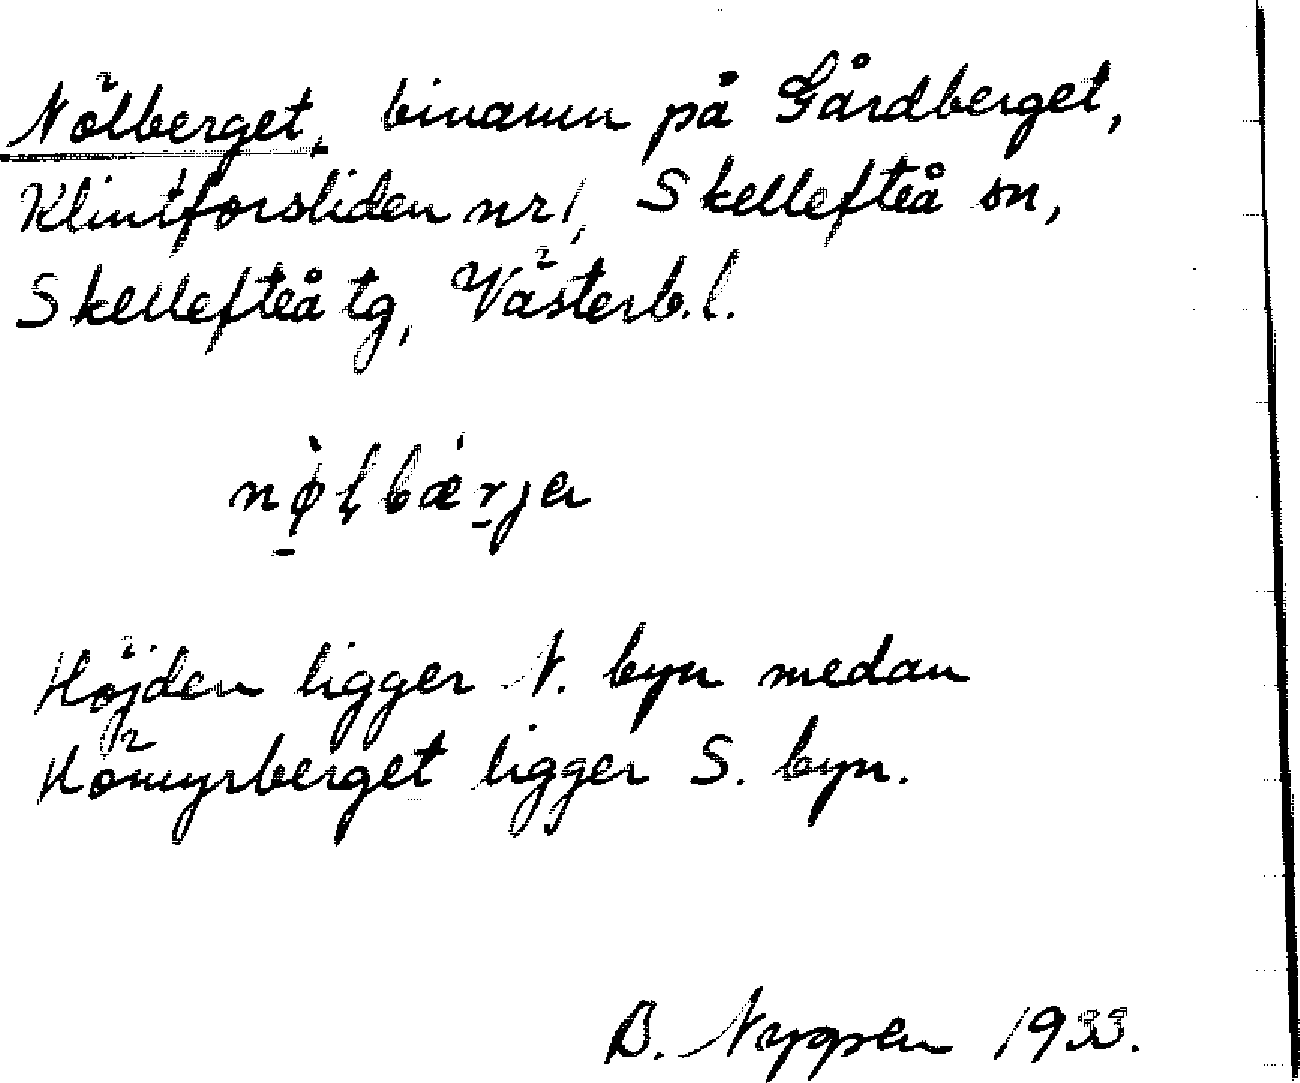 Nölberget, binamn på Gårdberget,
Klintforsliden nr 1, Skellefteå sn,
Skellefteå tg, Västerb. l.
nø̀ḷbǽrja
Höjden ligger N. byn medan
Hömyrberget ligger S. byn.
B. Nygren 1933.